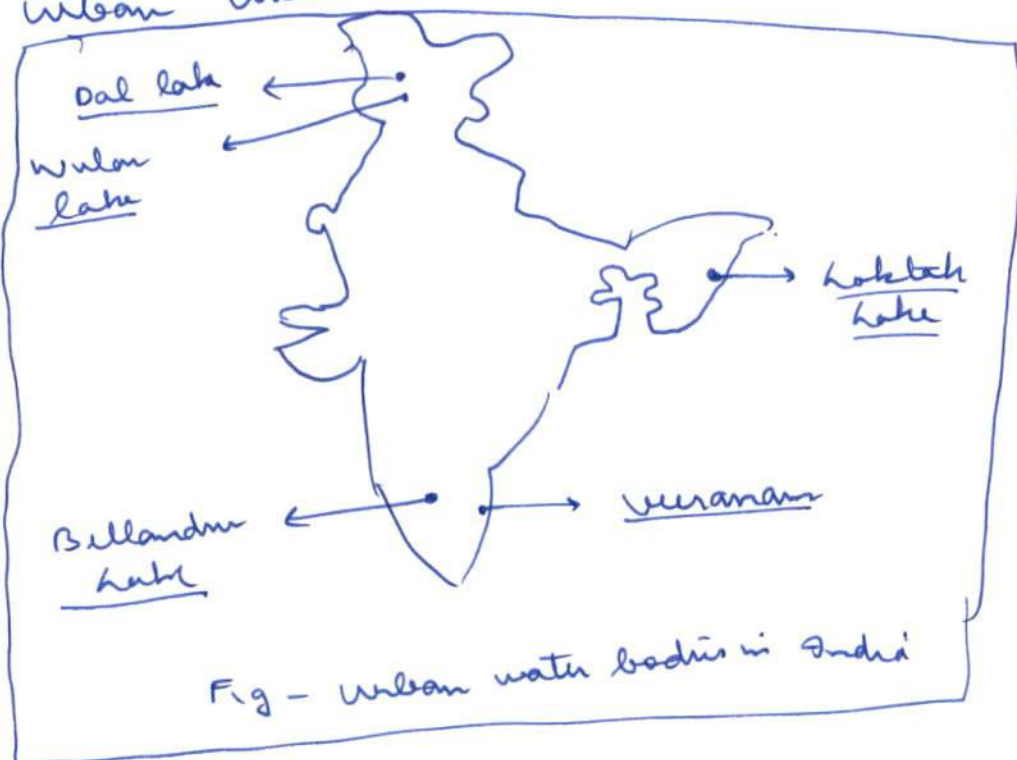 Urban
Dal lake
Wular
lake
Loktak
Lake
Bellandur
Lake
Veeranam
Fig - Urban water bodies in India